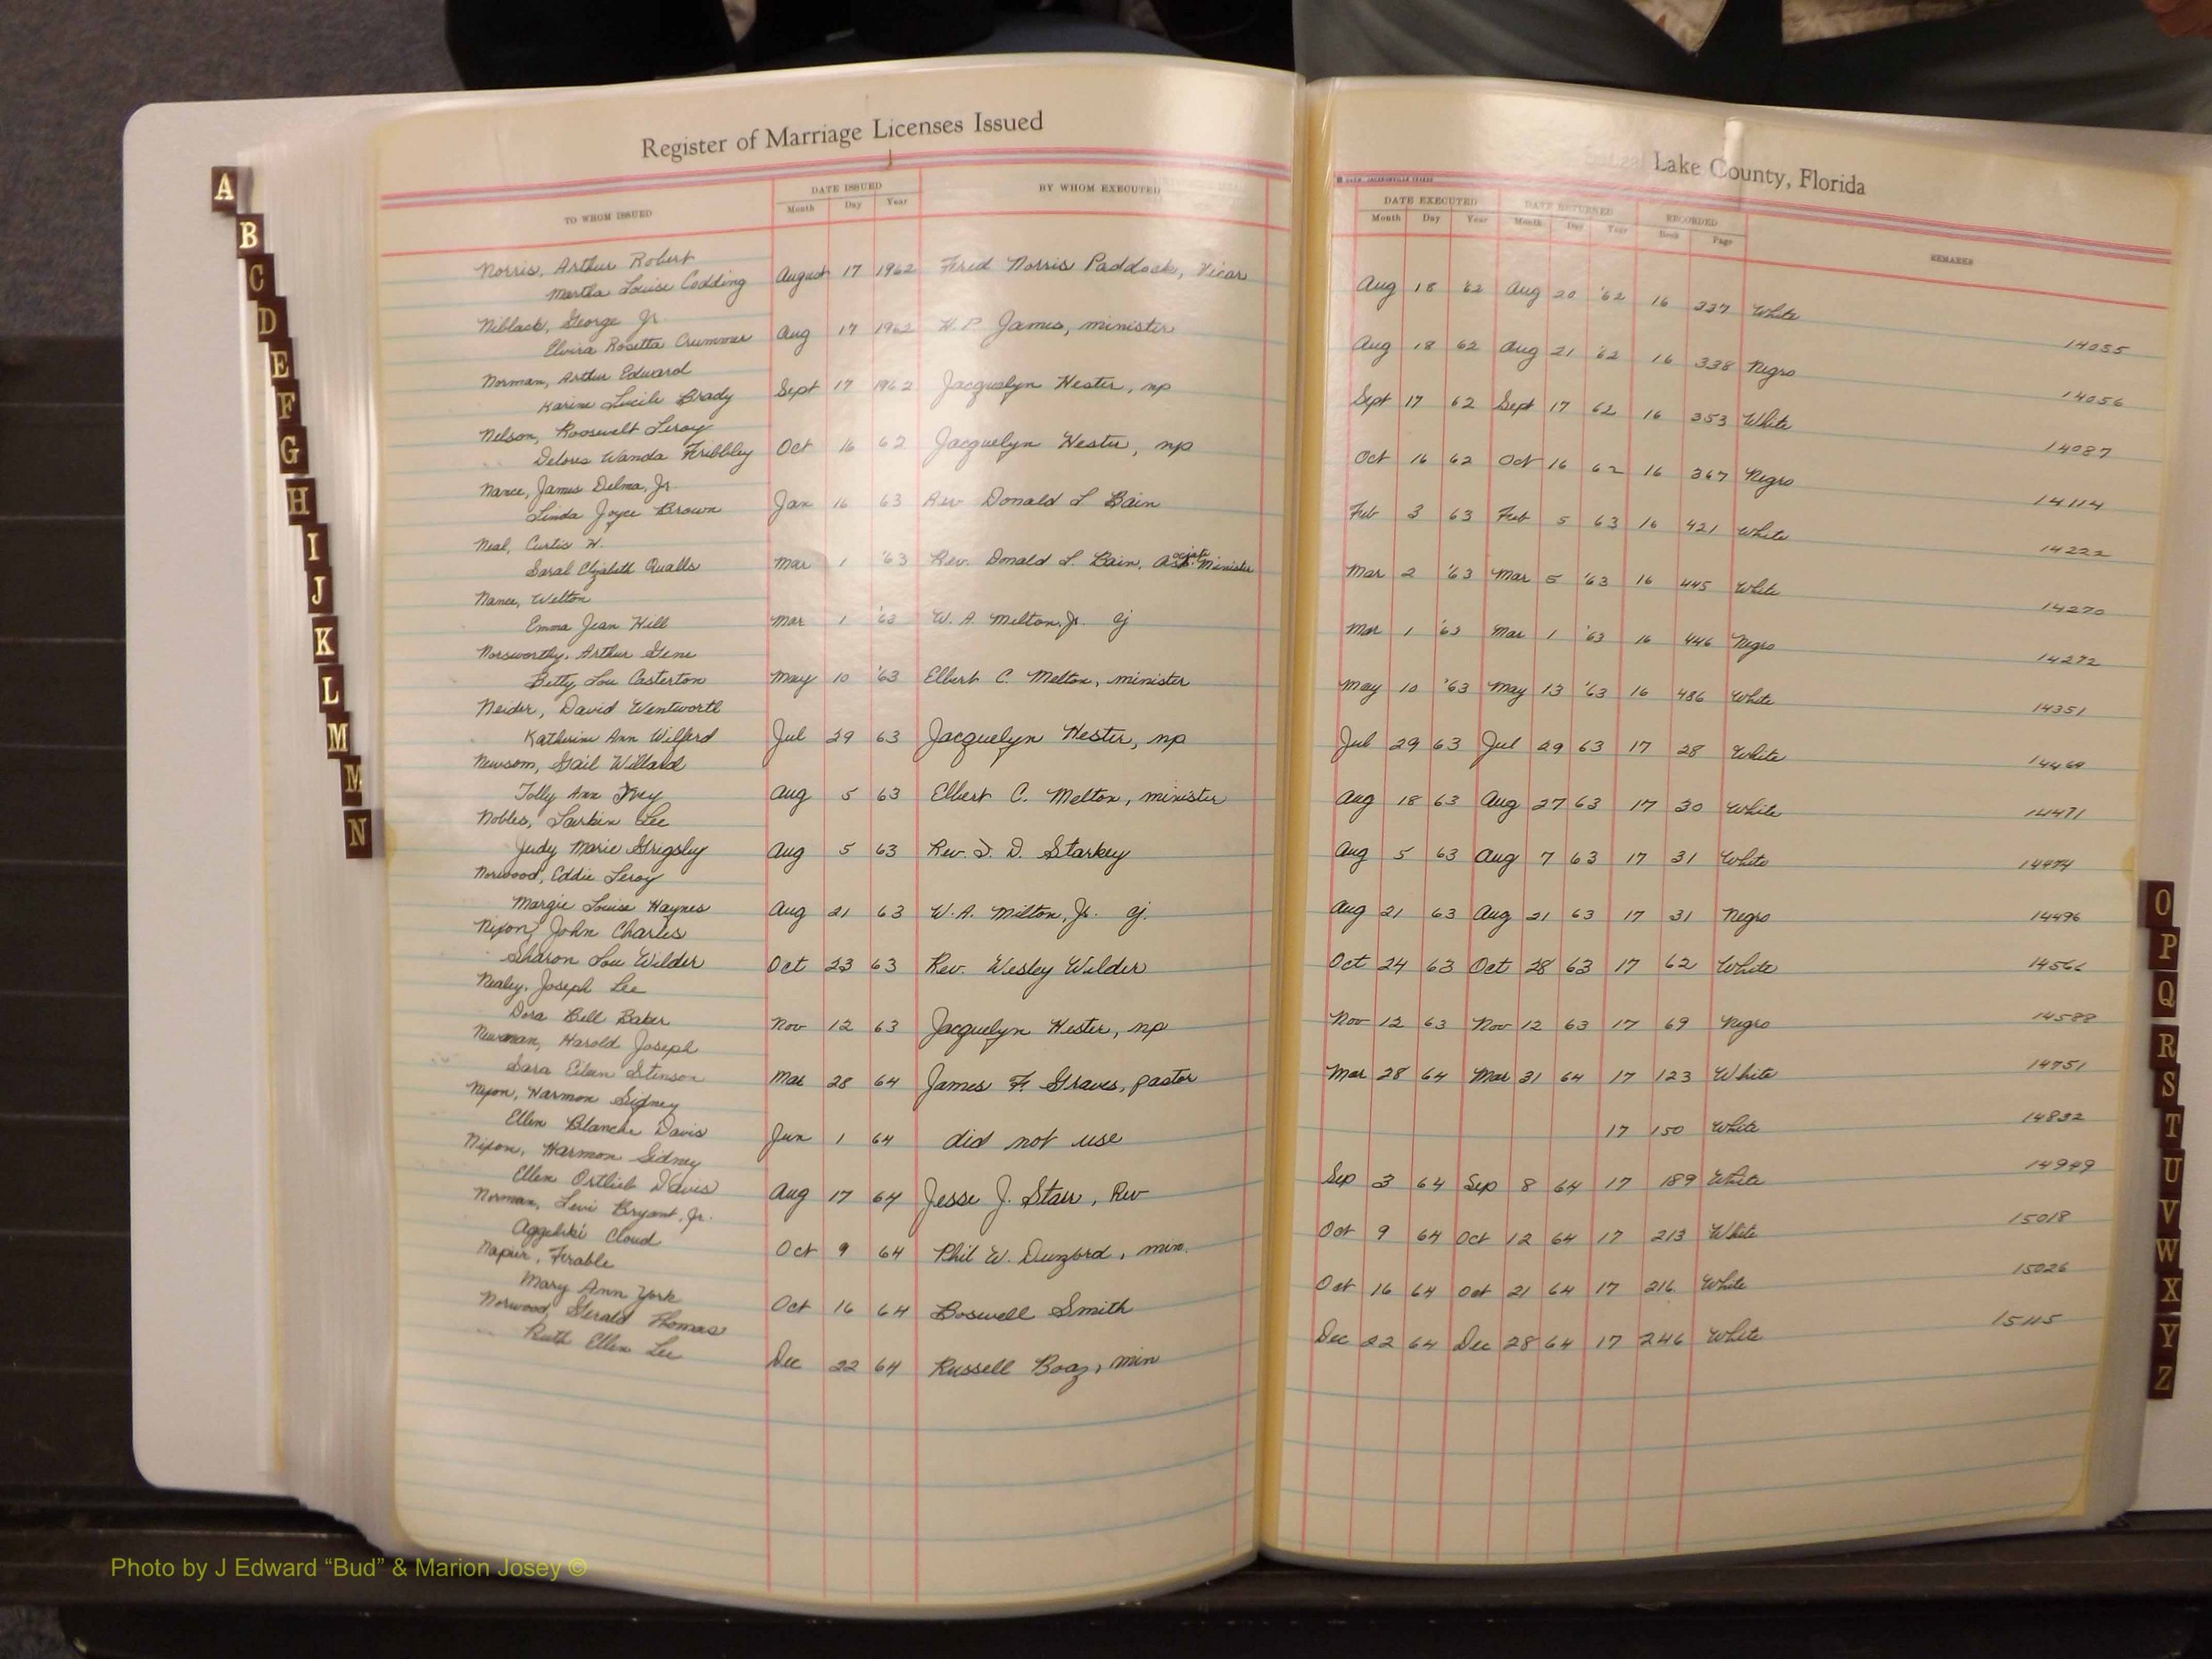 Register of Marriage Licenses Issued
TO WHOM ISSUED DATE ISSUED BY WHOM EXECUTED
Month Day Year
Norris, Arthur Robert
Martha Louise Codding August 17 1962 Fred Norris Paddock, Vicar
Niblack, George Jr.
Elvira Rosetta Crummer Aug 17 1962 H. P. James, minister
Norman, Arthur Edward
Karine Lucile Brady Sept 17 1962 Jacquelyn Hester, np
Nelson, Roosevelt Leroy
Delores Wanda Fribbley Oct 16 62 Jacquelyn Hester, np
Nance, James Delma, Jr.
Linda Joyce Brown Jan 16 63 Rev Donald L Bain
Neal, Curtis H.
Sarah Elizabeth Qualls Mar 1 '63 Rev. Donald L. Bain, Minister
Nance, Welton
Emma Jean Hill Mar 1 '63 W. A. Milton, Jr. cj
Norsworthy, Arthur Gene
Betty Lou Casterton May 10 '63 Elbert C. Melton, minister
Neider, David Wentworth
Katherine Ann Wilford Jul 29 63 Jacquelyn Hester, np
Newsom, Gail Willard
Jolly Ann Ivey Aug 5 63 Elbert C. Melton, minister
Nobles, Larkin Lee
Judy Marie Grigsby Aug 5 63 Rev. D. Starkey
Norwood, Eddie Leroy
Margie Louise Haynes Aug 21 63 W. A. Milton, Jr. cj.
Nixon, John Charles
Sharon Lou Wilder Oct 23 63 Rev. Wesley Wilder
Nealey, Joseph Lee
Dora Bell Baker Nov 12 63 Jacquelyn Hester, np
Newman, Harold Joseph
Sara Eileen Stinson Mar 28 64 James F. Graves, pastor
Nixon, Harmon Sidney
Ellen Blanche Davis Jun 1 64 did not use
Nixon, Harmon Sidney
Ellen Ortlieb Davis Aug 17 64 Jesse J. Starr, Rev
Norman, Levi Bryant, Jr.
Aggeliki Cloud Oct 9 64 Phil W. min.
Napier, Firable
Mary Ann York Oct 16 64 Boswell Smith
Norwood, Gerald Thomas
Ruth Ellen Lee Dec 22 64 Russell Boaz, min
Lake County, Florida
DATE EXECUTED DATE RETURNED RECORDED REMARKS
Month Day Year Month Day Year Book Page
Aug 18 '62 Aug 20 '62 16 337 White
14055
Aug 18 62 Aug 21 '62 16 338 Negro
14056
Sept 17 62 Sept 17 62 16 353 White
14087
Oct 16 62 Oct 16 62 16 367 Negro
14114
Feb 3 63 Feb 5 63 16 421 White
14222
Mar 2 '63 Mar 5 '63 16 445 White
14270
Mar 1 '63 Mar 1 '63 16 446 Negro
14272
May 10 '63 May 13 '63 16 486 White
14351
Jul 29 63 Jul 29 63 17 28 White
14469
Aug 18 63 Aug 27 63 17 30 White
14471
Aug 5 63 Aug 7 63 17 31 White
14474
Aug 21 63 Aug 21 63 17 31 Negro
14496
Oct 24 63 Oct 28 63 17 62 White
14566
Nov 12 63 Nov 12 63 17 69 Negro
14588
Mar 28 64 Mar 31 64 17 123 White
14751
17 150 White
14832
Sep 3 64 Sep 8 64 17 189 White
14949
Oct 9 64 Oct 12 64 17 213 White
15018
Oct 16 64 Oct 21 64 17 216 White
15026
Dec 22 64 Dec 28 64 17 246 White
15115
A
B
C
D
E
F
G
H
I
J
K
L
M
M
N
O
P
Q
R
S
T
U
V
W
X
Y
Z
Photo by J Edward “Bud” & Marion Josey ©